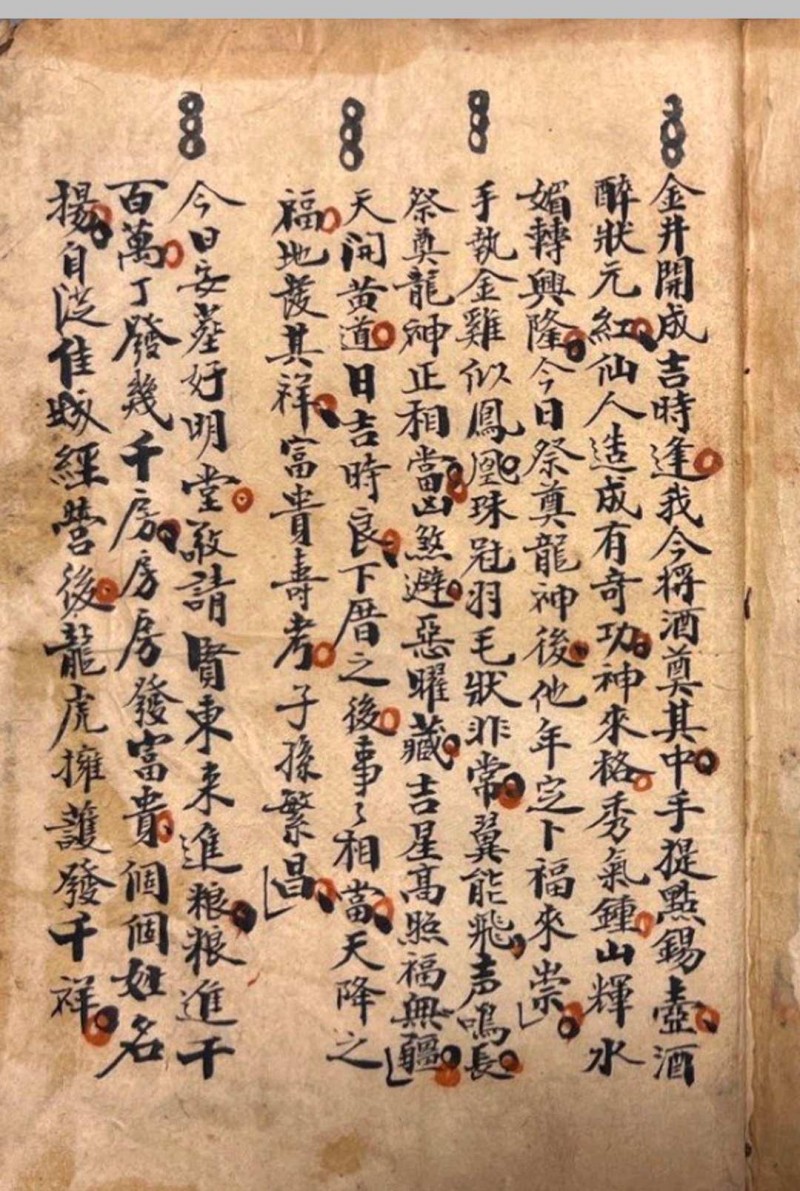 金井開成吉時逢我今將酒奠其中手提點錫壺酒
醉狀元紅仙人造成有奇功神來格秀氣鍾山輝水
媚轉興隆今日祭奠龍神後他年定卜福來崇
手執金雞似鳳凰珠冠羽毛狀非常翼能飛声鳴長
祭奠龍神正相當凶煞避惡曜藏吉星高照福無疆
天開黄道日吉時良下厝之後事々相當天降之
福地護其祥富貴壽考子孫繁昌
今日安葬好明堂敬請賢東来進粮粮進千
百萬丁發幾千房房房發富貴個個姓名
揚自從佳城經营後龍虎擁護發千祥